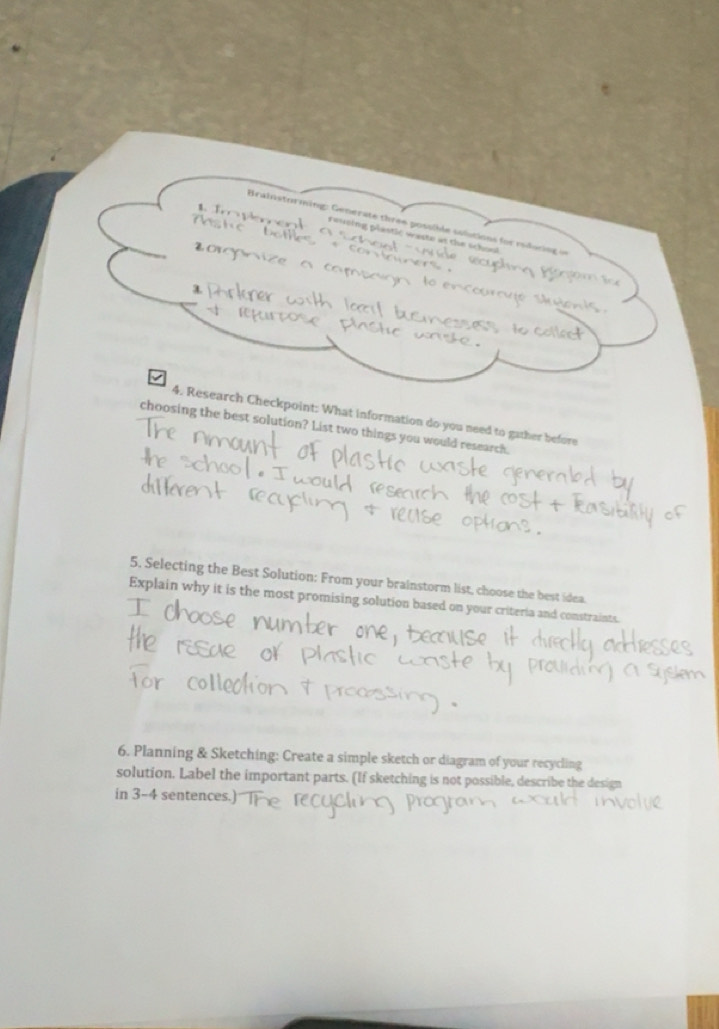 Brainstorming: Generate three possible solutions for reducing or
reusing plastic waste at the school.
1. Implement a school-wide recycling program for
Plastic bottles + containers.
2. organize a campaign to encourage students.
3. Partner with local businessess to collect
+ repurpose plastic waste.
4. Research Checkpoint: What information do you need to gather before
choosing the best solution? List two things you would research.
The amount of plastic waste generated by
the school. I would research the cost + feasibility of
different recycling + reuse options.
5. Selecting the Best Solution: From your brainstorm list, choose the best idea.
Explain why it is the most promising solution based on your criteria and constraints.
I choose number one, because it directly addresses
the issue of plastic waste by providing a system
for collection + processing.
6. Planning & Sketching: Create a simple sketch or diagram of your recycling
solution. Label the important parts. (If sketching is not possible, describe the design
in 3-4 sentences.) The recycling program would involve